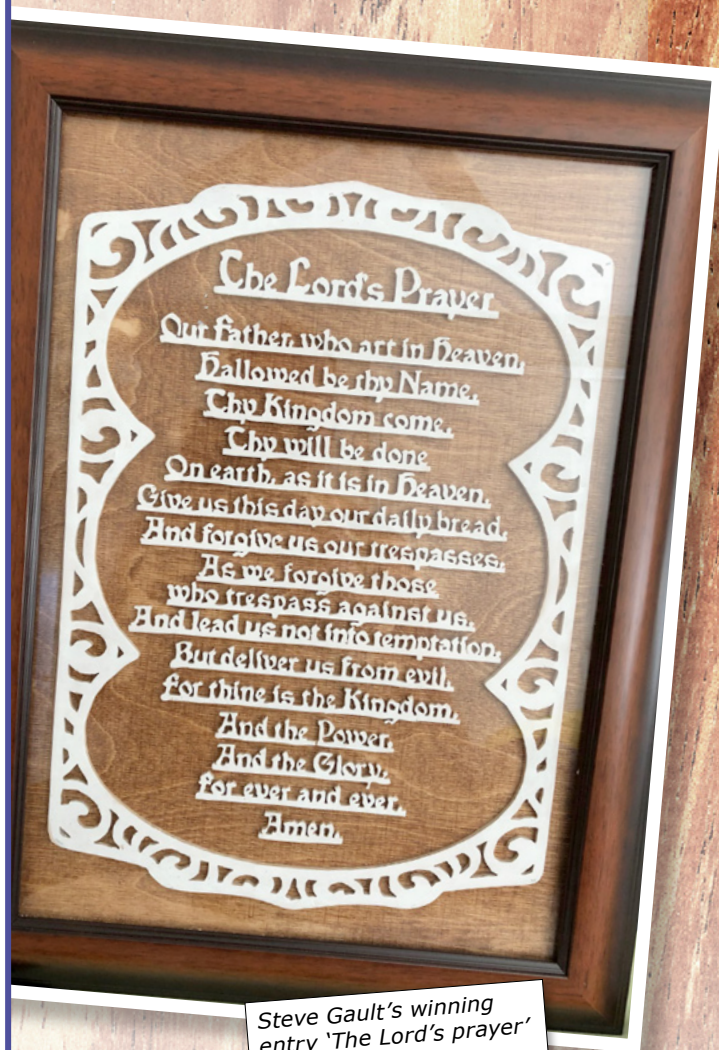 The Lord's Prayer
Our Father, who art in Heaven,
Hallowed be thy Name,
Thy Kingdom come,
Thy will be done
On earth, as it is in Heaven.
Give us this day our daily bread,
And forgive us our trespasses,
As we forgive those
who trespass against us.
And lead us not into temptation,
But deliver us from evil,
For thine is the Kingdom,
And the Power,
And the Glory,
For ever and ever,
Amen.
Steve Gault's winning
entry 'The Lord's prayer'